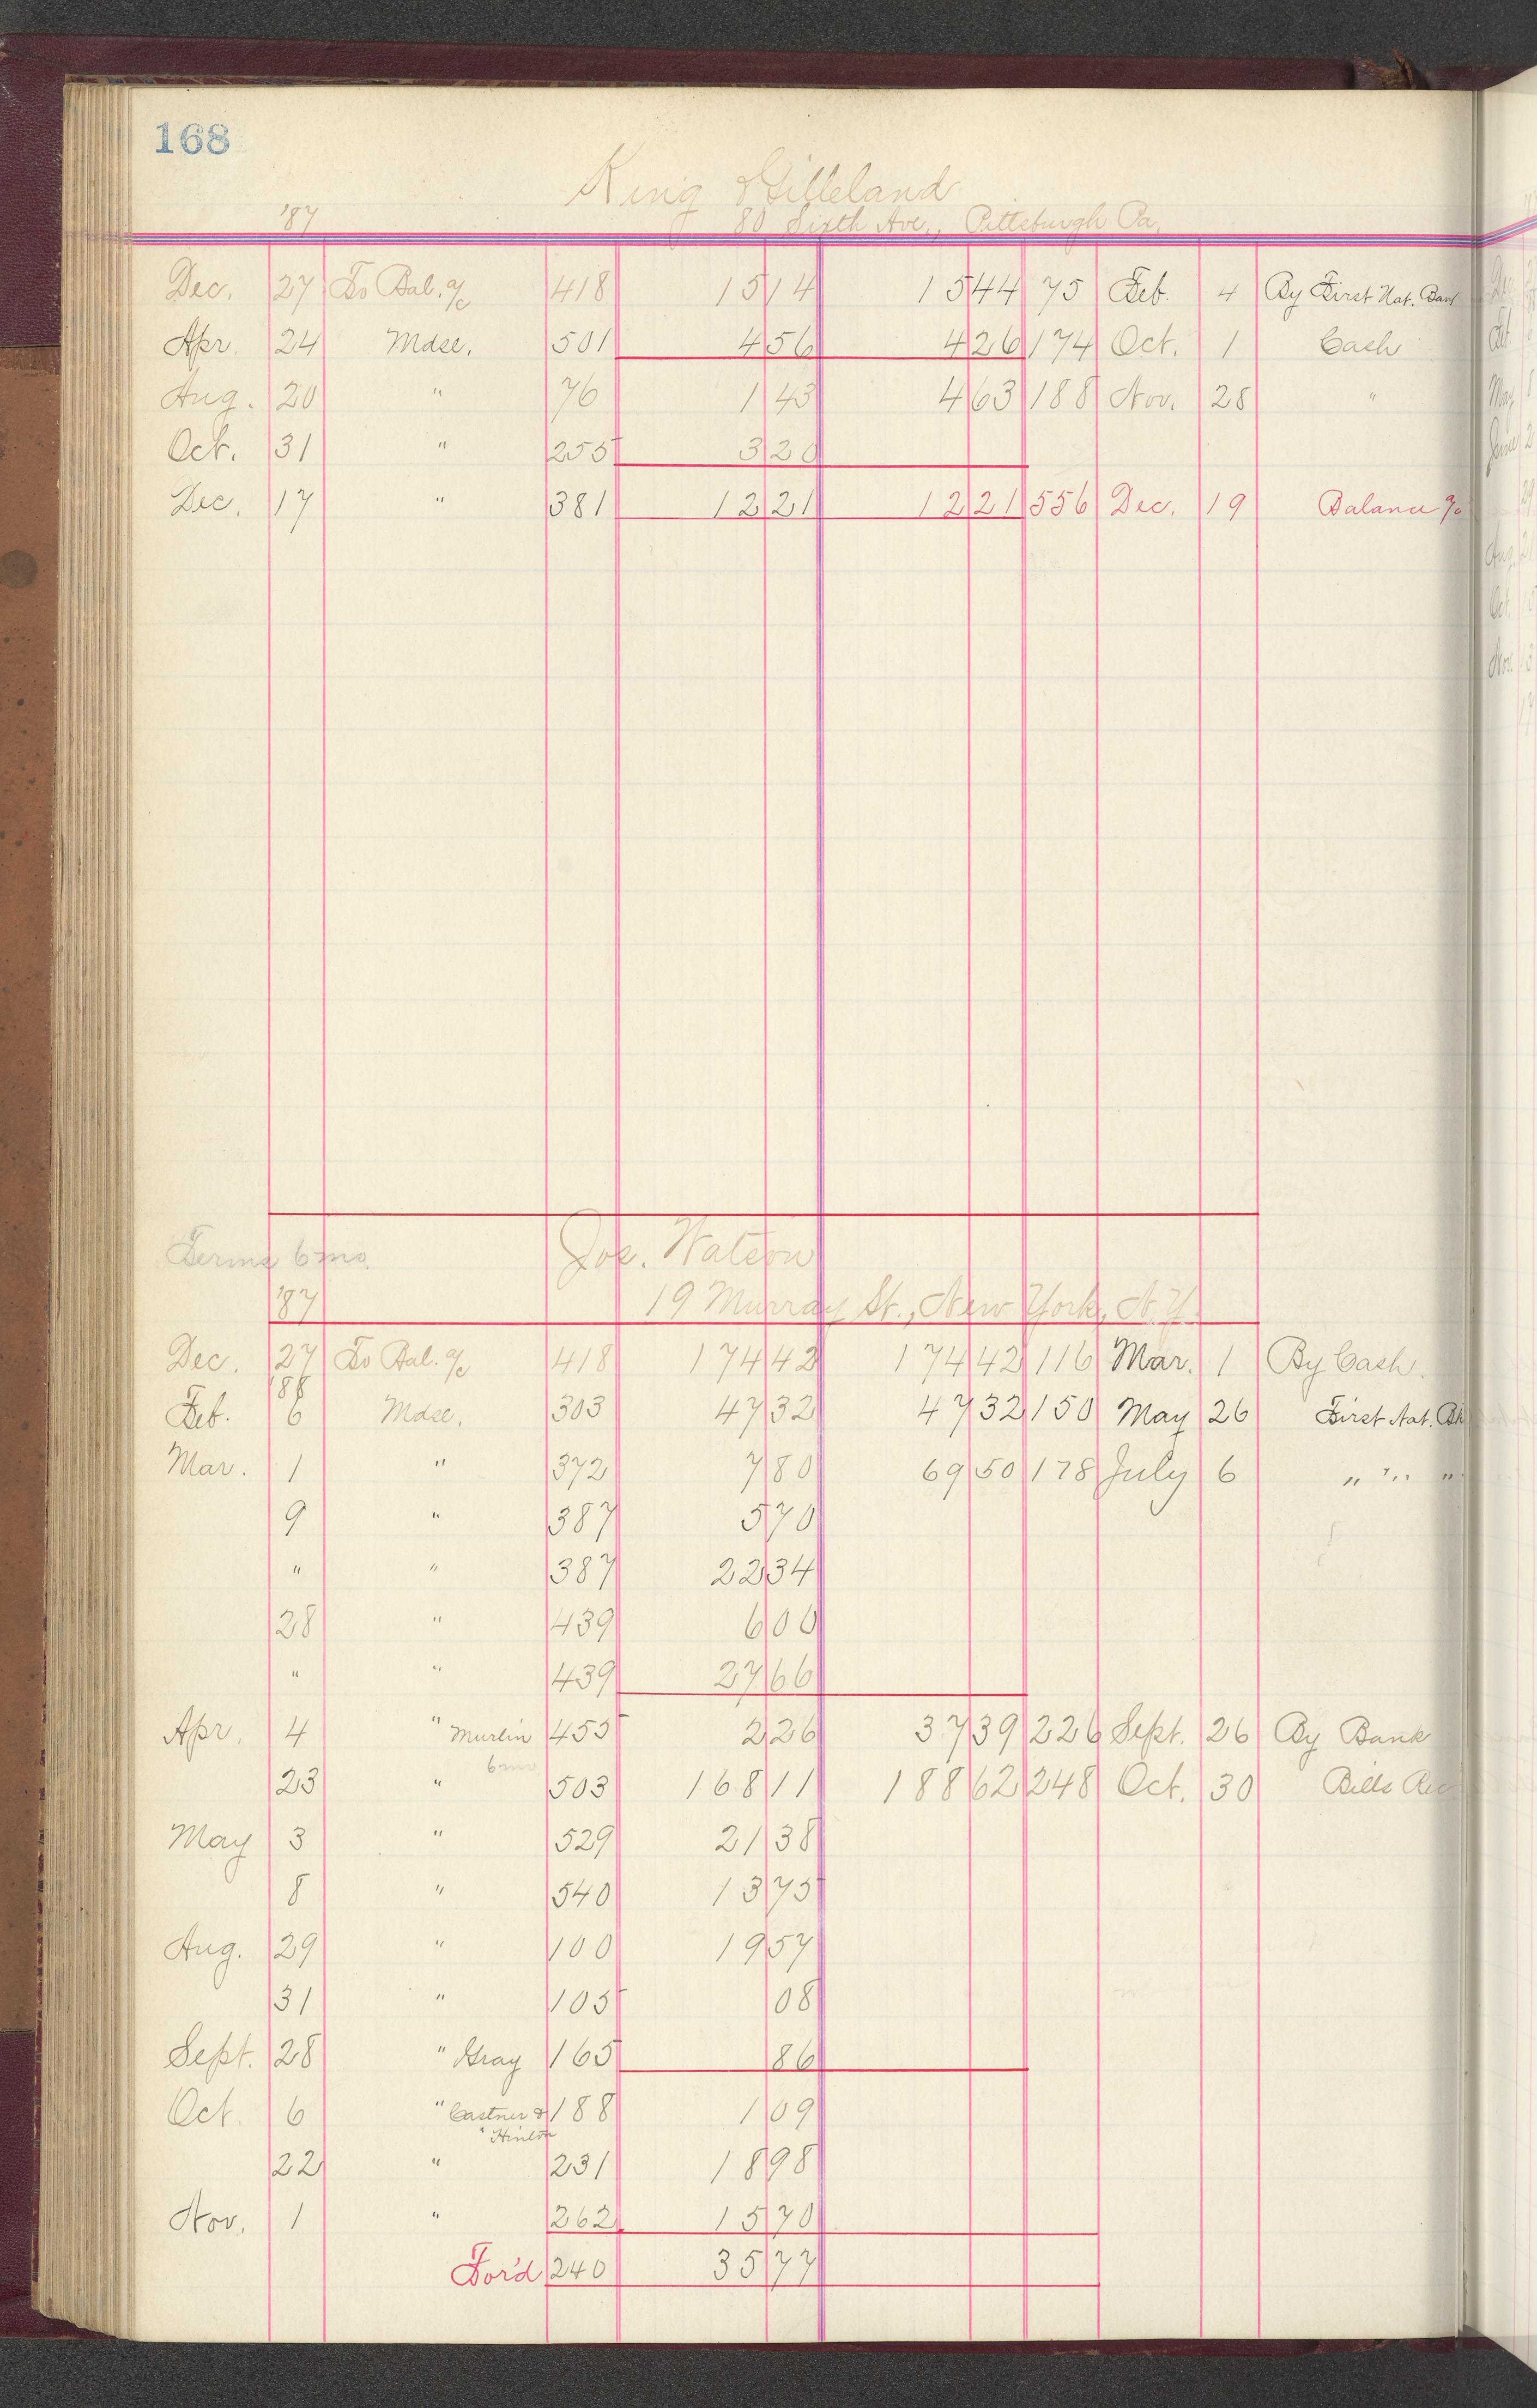 168
King & Gilleland
'87 80 Sixth Ave., Pittsburgh Pa.
Dec. 27 To Bal. a/c 418 15 14 15 44 75 Feb. 4 By First Nat. Bank
Apr. 24 Mdse. 501 4 56 4 26 174 Oct. 1 Cash
Aug. 20 " 76 1 43 4 63 188 Nov. 28 "
Oct. 31 " 255 3 20
Dec. 17 " 381 12 21 12 21 556 Dec. 19 Balance a/c
Terms 6 mo. Jos. Watson
'87 19 Murray St., New York, N.Y.
Dec. 27 To Bal. a/c 418 174 42 174 42 116 Mar. 1 By Cash.
'88
Feb. 6 Mdse. 303 47 32 47 32 150 May 26 First Nat. Bk
Mar. 1 " 372 7 80 69 50 178 July 6 " " "
9 " 387 5 70
" " 387 22 34
28 " 439 6 00
" " 439 27 66
Apr. 4 " Murlin 455 2 26 37 39 226 Sept. 26 By Bank
6 mo
23 " 503 168 11 188 62 248 Oct. 30 Bills Rec
May 3 " 529 21 38
8 " 540 13 75
Aug. 29 " 100 19 57
31 " 105 08
Sept. 28 " Gray 165 86
Oct. 6 " Castner & 188 1 09
" Hinlon
22 " 231 18 98
Nov. 1 " 262 15 70
For'd 240 35 77